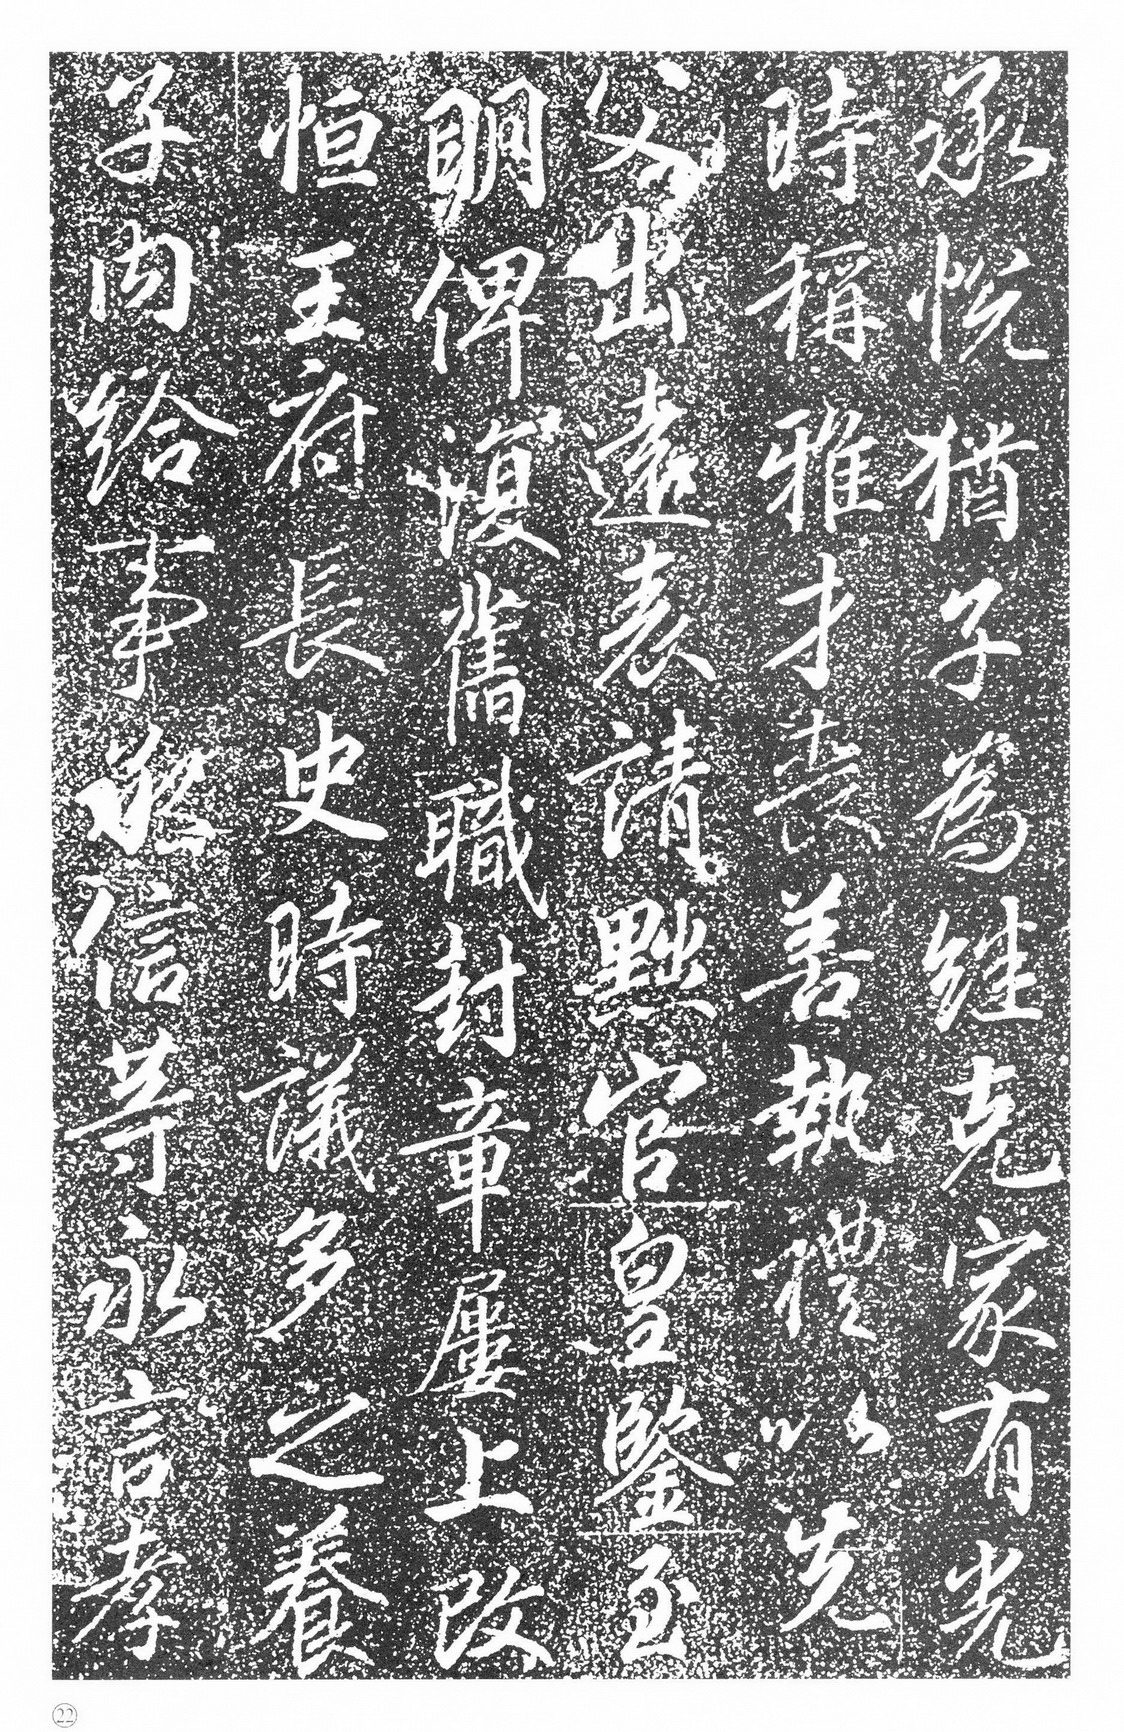 承悅猶子為継克家有光
時稱雅才喪善執禮以先
父出遠表請黜官皇鑒至
明俾復舊職封章屢上改
恒王府長史時議多之養
子内給事信等永言孝
22